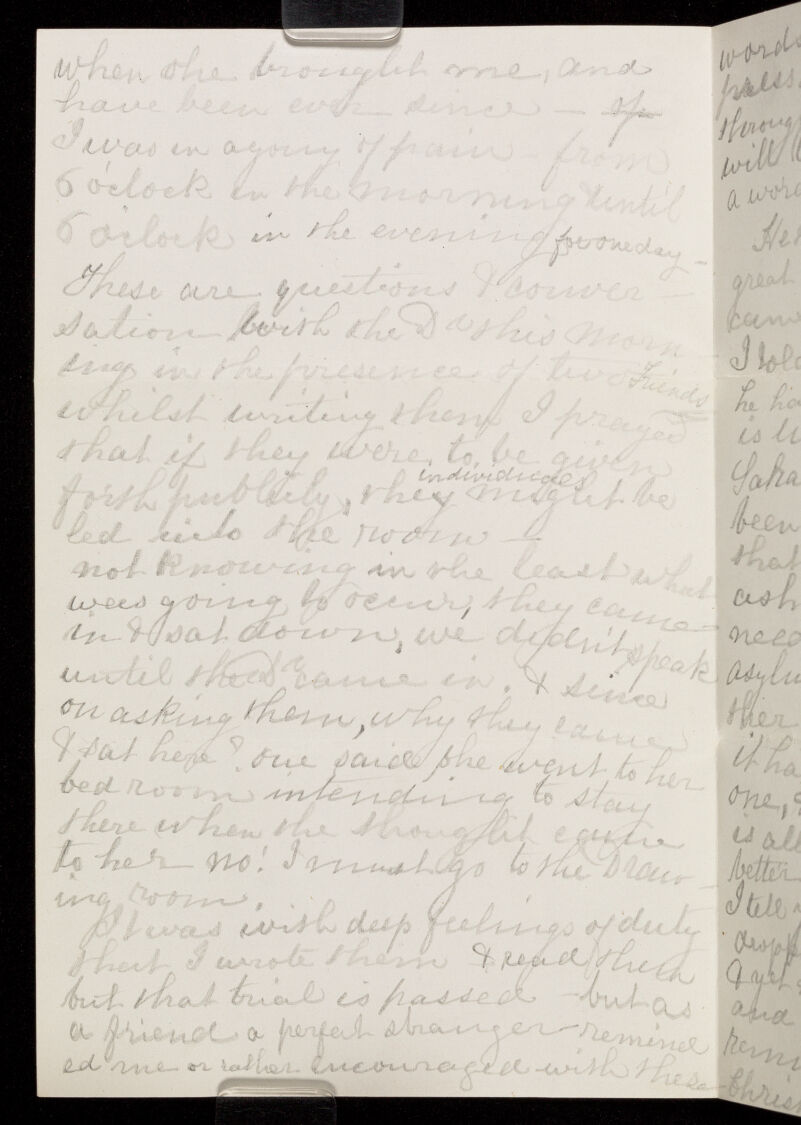 when she brought me, and
have been ever since - of
I was in agony of pain - from
6 o'clock in the morning until
6 o'clock in the evening for one day -
These are questions & conver -
sation with the Dr this morn
ing in the presence of two Friends
whilst writing them I prayed
that if they were to be given
individuals
forth publicly, they might be
led into the room -
not knowing in the least what
was going to occur, they came
in & sat down, we didn't speak
until the Dr came in. & since
on asking them, why they came
& sat here? one said she went to her
bed room intending to stay
there when the thought came
to her no! I must go to the Draw -
ing room.
It was with deep feelings of duty
that I wrote them & read them
but that trial is passed - but as
a friend a perfect stranger remind
ed me or rather encouraged with these
word
press
throug
will
a word
Her
great
came
I told
he ha
is
been
that
ash
need
asylu
ther
it ha
one,
is all
better
I tell
dropp
& yet
and
remi
Christ